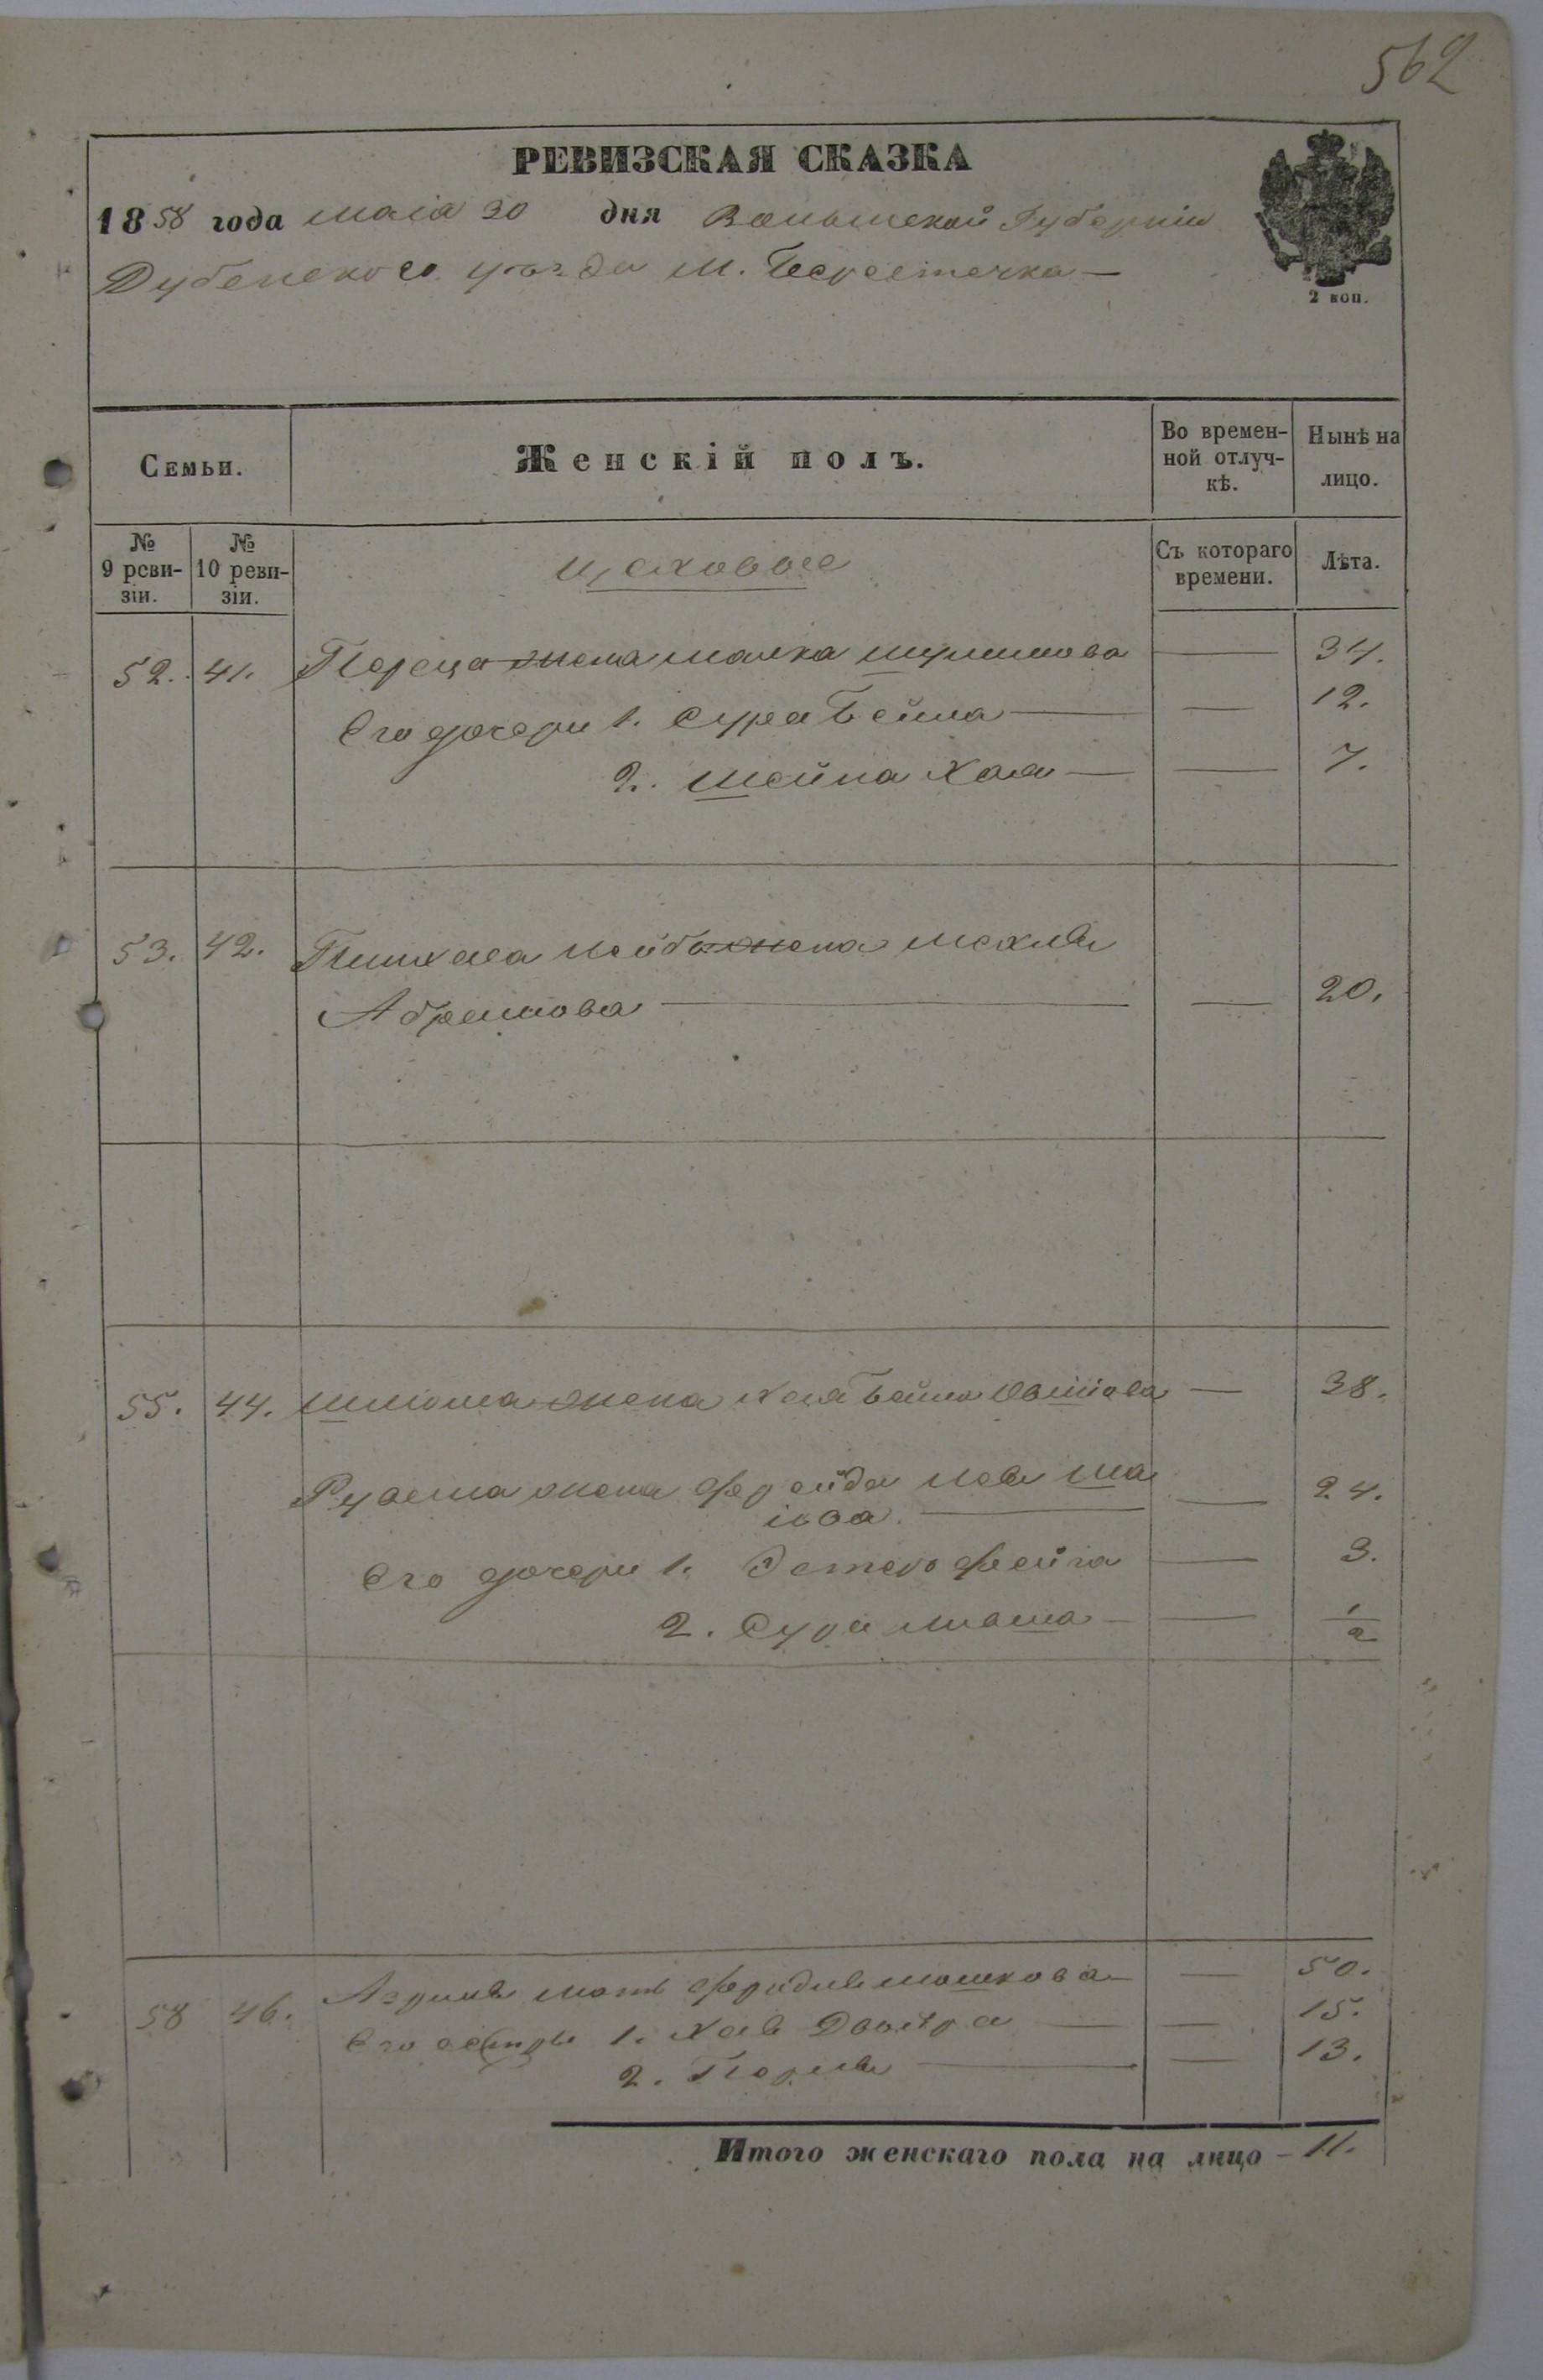 562
РЕВИЗСКАЯ СКАЗКА
1858 года маія 30 дня Волынской Губерніи
Дубенского уѣзда м. Берестечка —
2 коп.
Семьи.
Женскій полъ.
Во времен-
ной отлуч-
кѣ.
Нынѣ на
лицо.
№
9 реви-
зіи.
№
10 реви-
зіи.
Цеховые
Съ котораго
времени.
Лѣта.
52. 41. Переца жена Малка Шулимова — 34.
Его дочери 1. Сура Бейла — — 12.
2. Шейна Хая — — 7.
53. 42. Пинхаса Лейбы жена
Абрамова — — 20.
55. 44. Шлиома жена Хая Бейла — 38.
Рувена жена Фрейда Лея Ша
іова. — — 24.
Его дочери 1. Эстеръ Фейга — 3.
2. Сура — — 1/2
58 46. мать Мошкова — — 50.
Его сестры 1. Хая Двойра — — 15.
2. Перля — — 13.
Итого женскаго пола на лицо — 11.